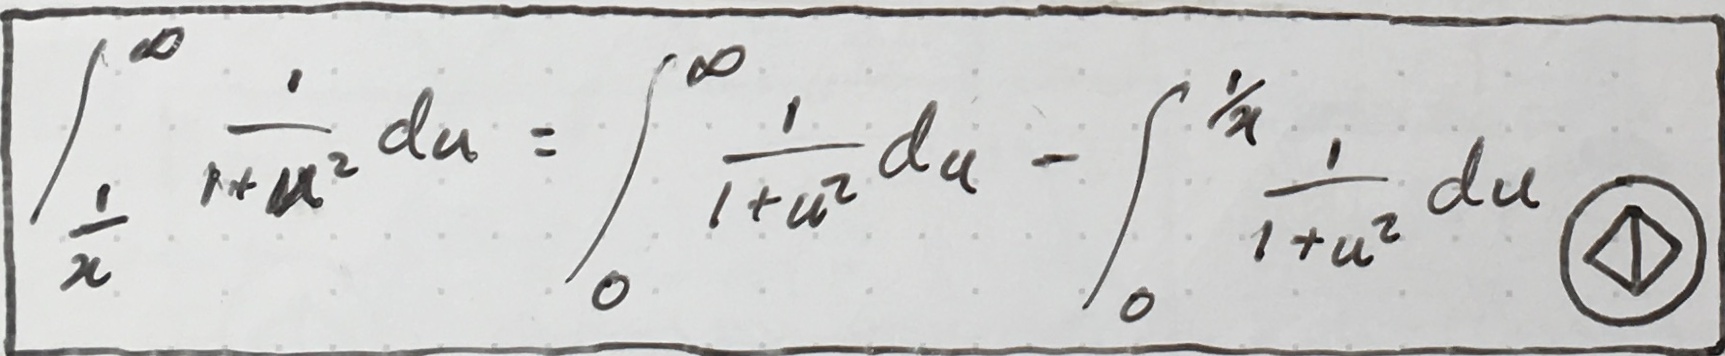 ∫_{1/x}^{∞} 1/(1+u²) du = ∫_{0}^{∞} 1/(1+u²) du - ∫_{0}^{1/x} 1/(1+u²) du